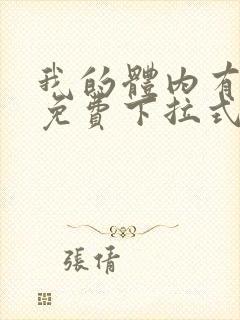 我的體內有
免費下拉式
張倩